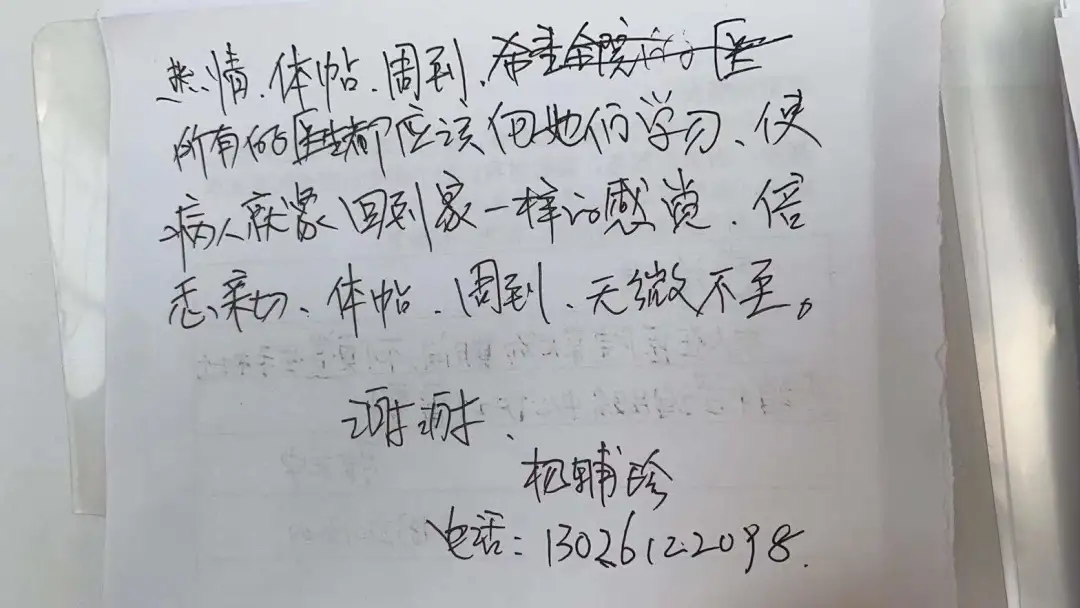 热情、体帖、周到、希望全院的医
所有的医生都应该向她们学习、使
病人就像回到家一样的感觉、倍
感亲切、体帖、周到、无微不至。
谢谢、
杨辅珍
电话：13026122098.